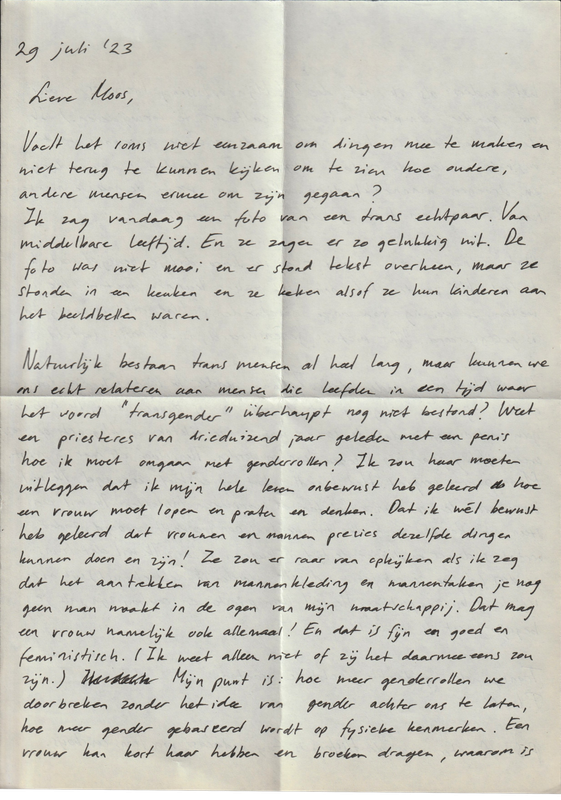 29 juli '23
Lieve Moos,
Voelt het soms niet eenzaam om dingen mee te maken en
niet terug te kunnen kijken om te zien hoe oudere,
andere mensen ermee om zijn gegaan?
Ik zag vandaag een foto van een trans echtpaar. Van
middelbare leeftijd. En ze zagen er zo gelukkig uit. De
foto was niet mooi en er stond tekst overheen, maar ze
stonden in een keuken en ze keken alsof ze hun kinderen aan
het beeldbellen waren.
Natuurlijk bestaan trans mensen al heel lang, maar kunnen we
ons echt relateren aan mensen die leefden in een tijd waar
het woord "transgender" überhaupt nog niet bestond? Weet
een priesteres van drieduizend jaar geleden met een penis
hoe ik moet omgaan met genderrollen? Ik zou haar moeten
uitleggen dat ik mijn hele leven onbewust heb geleerd hoe
een vrouw moet lopen en praten en denken. Dat ik wél bewust
heb geleerd dat vrouwen en mannen precies dezelfde dingen
kunnen doen en zijn! Ze zou er raar van opkijken als ik zeg
dat het aantrekken van mannenkleding en mannentaken je nog
geen man maakt in de ogen van mijn maatschappij. Dat mag
een vrouw namelijk ook allemaal! En dat is fijn en goed en
feministisch. (Ik weet alleen niet of zij het daarmee eens zou
zijn.) Mijn punt is: hoe meer genderrollen we
doorbreken zonder het idee van gender achter ons te laten,
hoe meer gender gebaseerd wordt op fysieke kenmerken. Een
vrouw kan kort haar hebben en broeken dragen, waarom is